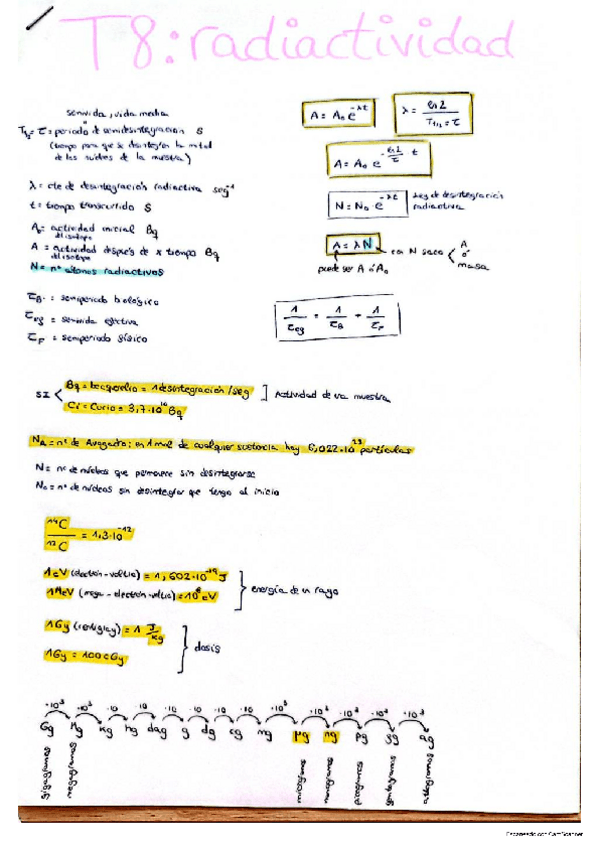 T8: radiactividad
semivida, vida media
T½ = τ = periodo de semidesintegración S
(tiempo para que se desintegren la mitad
de los núcleos de la muestra)
λ = cte de desintegración radiactiva seg⁻¹
t = tiempo transcurrido S
A₀ = actividad inicial Bq
del isotopo
A = actividad después de x tiempo Bq
del isotopo
N = nº átomos radiactivos
τB = semiperiodo biológico
τeg = semivida efectiva
τF = semiperiodo físico
A = A₀ e^-λt
λ = ln2 / T½ = τ
A = A₀ e^-ln2/τ t
N = N₀ e^-λt
Ley de desintegración
radiactiva
A = λN
con N saco
A
ó
masa
puede ser A ó A₀
1/τeg = 1/τB + 1/τF
SI < Bq = becquerelio = 1 desintegración/seg
Ci = Curio = 3,7·10¹⁰ Bq
] Actividad de una muestra
NA = nº de Avogadro: en 1 mol de cualquier sustancia hay 6,022·10²³ partículas
N = nº de núcleos que permanece sin desintegrarse
N₀ = nº de núcleos sin desintegrar que tengo al inicio
¹⁴C / ¹²C = 1,3·10⁻¹²
1 eV (electrón-voltio) = 1,602·10⁻¹⁹ J
1 MeV (mega-electrón-voltio) = 10⁶ eV
} energía de un rayo
1 Gy (centigray) = 1 J/kg
1 Gy = 100 cGy
} dosis
·10³ ·10³ ·10 ·10 ·10 ·10 ·10 ·10 ·10³ ·10³ ·10³ ·10³ ·10³
Gg Mg kg hg dag g dg cg mg µg ng pg gg ag
gigagramos megagramos microgramos nanogramos picogramos attogramos
Escaneado con CamScanner